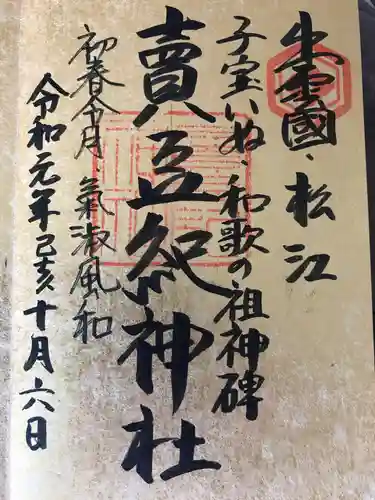 出雲國・松江
子宝いぬ・和歌の祖神碑
賣豆紀神社
初春令月、氣淑風和
令和元年己亥十月六日